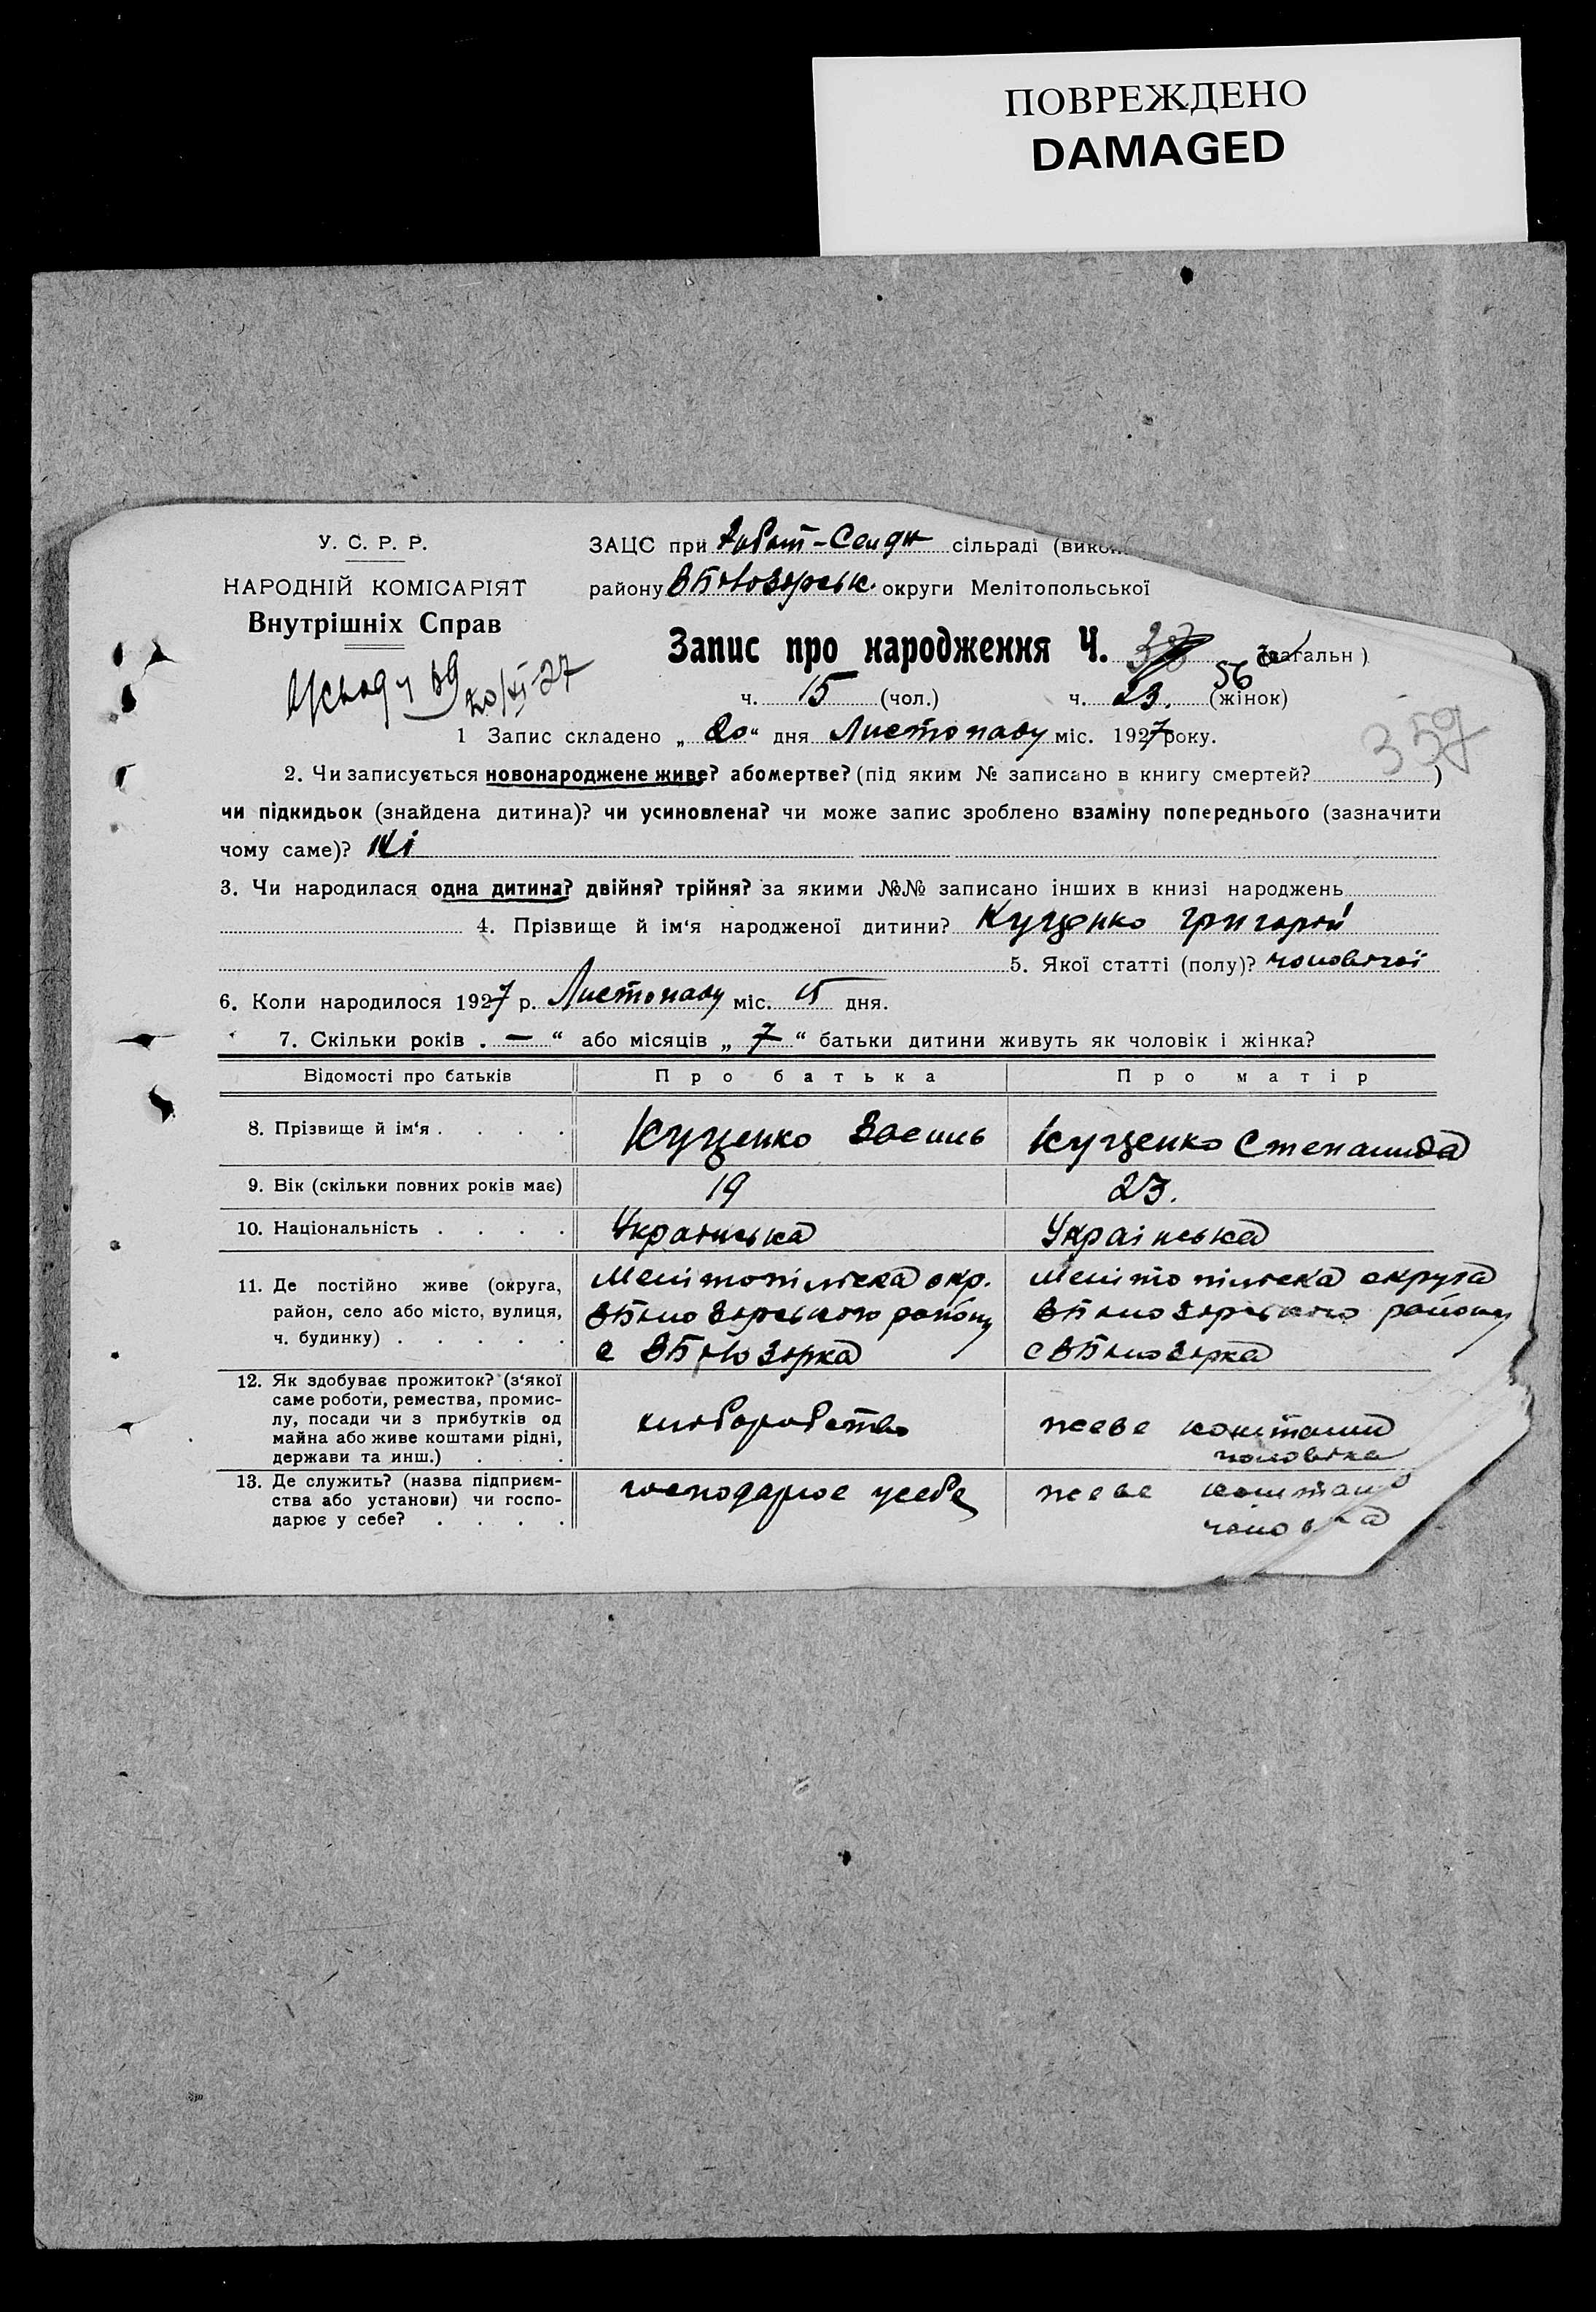 ПОВРЕЖДЕНО
DAMAGED
У. С. Р. Р.
НАРОДНІЙ КОМІСАРІЯТ
Внутрішніх Справ
ЗАЦС при сільраді (викон
району округи Мелітопольської
Запис про народження Ч. 38 (загальн)
56
ч. 15 (чол.) ч. 23. (жінок)
20/XI-27
359
1 Запис складено „20“ дня Листопаду міс. 1927 року.
2. Чи записується новонароджене живе? або мертве? (під яким № записано в книгу смертей? )
чи підкидьок (знайдена дитина)? чи усиновлена? чи може запис зроблено взаміну попереднього (зазначити
чому саме)? Ні
3. Чи народилася одна дитина? двійня? трійня? за якими №№ записано інших в книзі народжень
4. Прізвище й ім‘я народженої дитини? Куценко Григорій
5. Якої статті (полу)? чоловічої
6. Коли народилося 1927 р. Листопаду міс. 15 дня.
7. Скільки років . — “ або місяців „ 7 “ батьки дитини живуть як чоловік і жінка?
Відомості про батьків Про батька Про матір
8. Прізвище й ім‘я . . . . Куценко Василь Куценко Степанида
9. Вік (скільки повних років має) 19 23.
10. Національність . . . . Українська Українська
11. Де постійно живе (округа, район, село або місто, вулиця, ч. будинку) . . . . .
Мелітопільска окр.
ВБілозорського району
с ВБілозірка
Мелітопільска округа
ВБілозорського району
с ВБілозерка
12. Як здобуває прожиток? (з‘якої саме роботи, ремества, промислу, посади чи з прибутків од майна або живе коштами рідні, держави та инш.) . .
хліборобство
живе коштами
чоловіка
13. Де служить? (назва підприємства або установи) чи господарює у себе? . . . .
господарює усебе
живе коштами
чоловіка